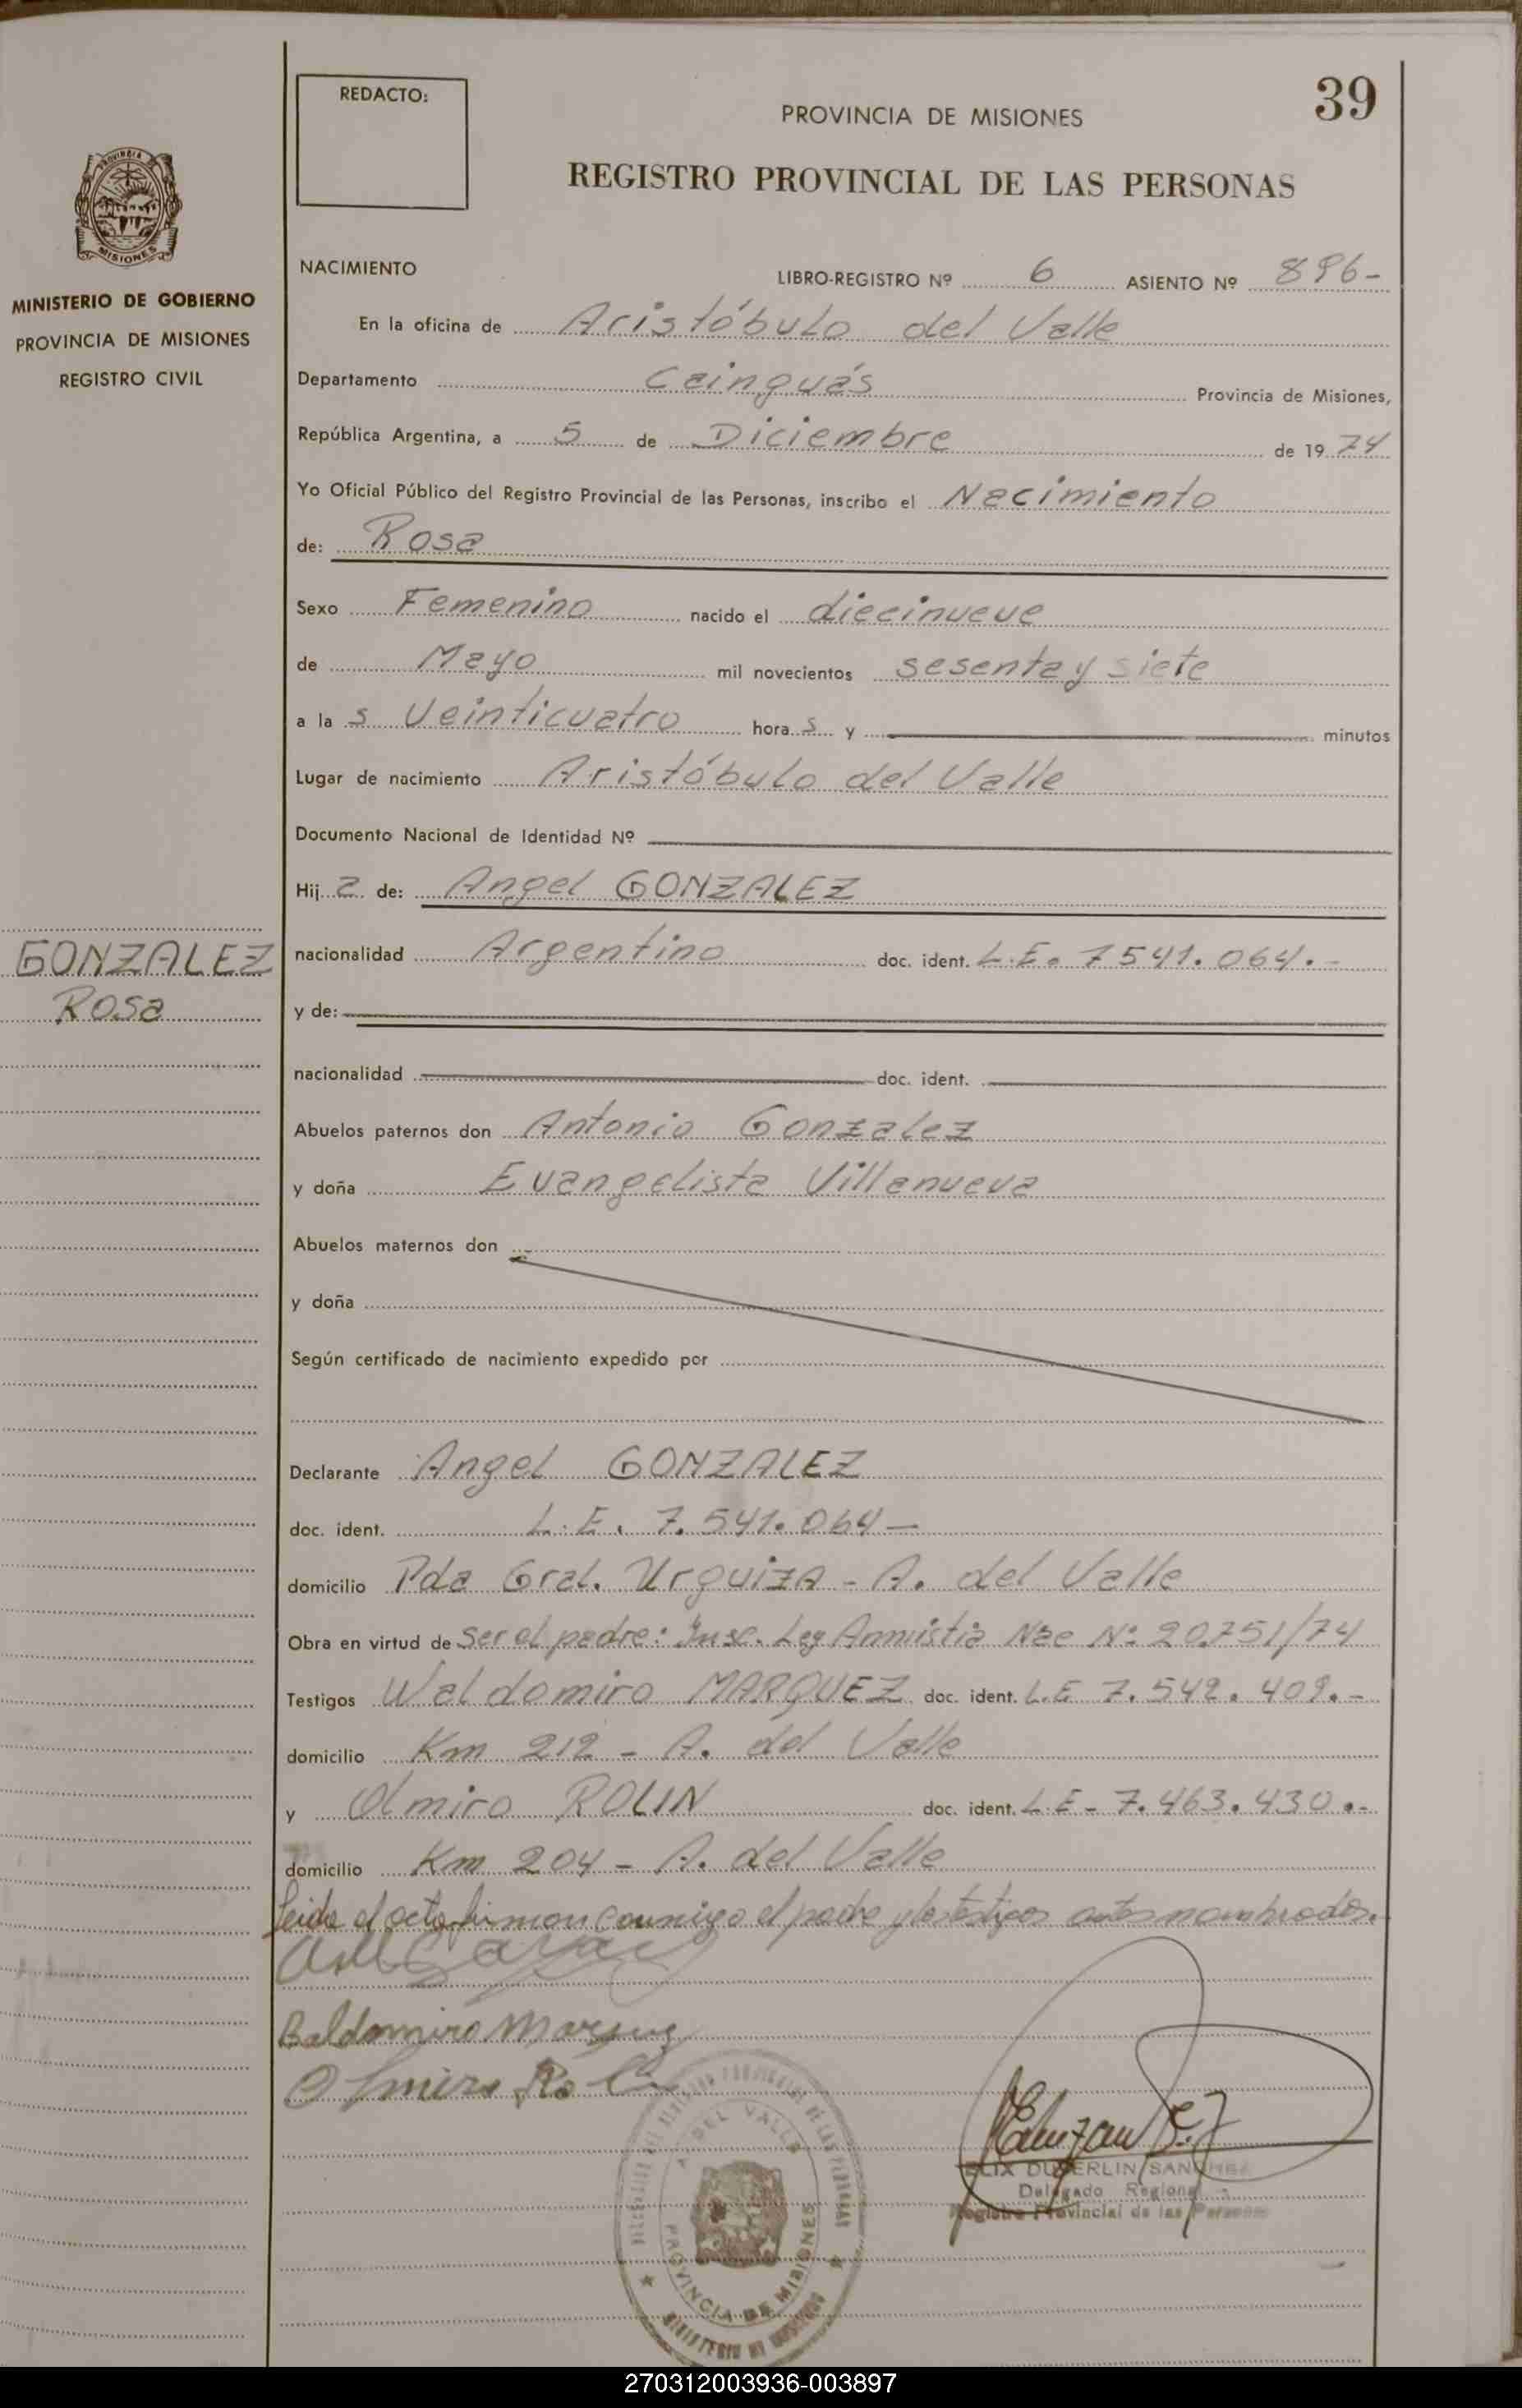 REDACTO:
39
PROVINCIA DE MISIONES
REGISTRO PROVINCIAL DE LAS PERSONAS
PROVINCIA DE
MISIONES
MINISTERIO DE GOBIERNO
PROVINCIA DE MISIONES
REGISTRO CIVIL
NACIMIENTO
LIBRO-REGISTRO Nº 6 ASIENTO Nº 896-
En la oficina de Aristóbulo del Valle
Departamento Cainguás Provincia de Misiones,
República Argentina, a 5 de Diciembre de 1974
Yo Oficial Público del Registro Provincial de las Personas, inscribo el Nacimiento
de: Rosa
Sexo Femenino nacido el diecinueve
de Mayo mil novecientos sesenta y siete
a la s Veinticuatro hora s y minutos
Lugar de nacimiento Aristóbulo del Valle
Documento Nacional de Identidad Nº
Hij a de: Angel GONZALEZ
GONZALEZ
Rosa
nacionalidad Argentino doc. ident. L.E. 7541.064.-
y de:
nacionalidad doc. ident.
Abuelos paternos don Antonio Gonzalez
y doña Evangelista Villanueva
Abuelos maternos don
y doña
Según certificado de nacimiento expedido por
Declarante Angel GONZALEZ
doc. ident. L.E. 7.541.064-
domicilio Pda Gral. Urquiza - A. del Valle
Obra en virtud de ser el padre: Insc. Ley Amnistia Nac Nº 20.751/74
Testigos Waldomiro MARQUEZ doc. ident. L.E 7.542.409.-
domicilio Km 212 - A. del Valle
y Olmiro ROLIN doc. ident. L.E - 7.463.430.-
domicilio Km 204 - A. del Valle
Leida el acta firman conmigo el padre y los testigos antes nombrados.
Baldomiro Marquez
Olmiro Rolin
A. DEL VALLE
PROVINCIA DE MISIONES
SANCHEZ
Delegado Regional
Registro Provincial de las Personas
270312003936-003897